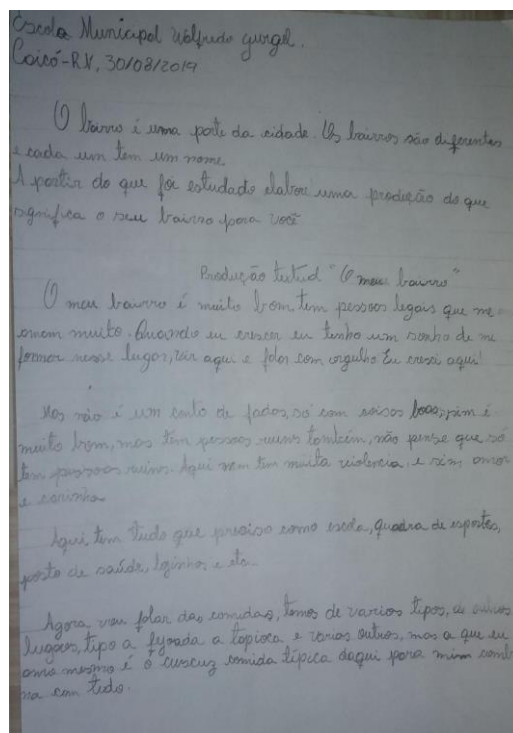 Escola Municipal Walfredo Gurgel.
Caicó-RN, 30/08/2019
O bairro é uma parte da cidade. Os bairros são diferentes
e cada um tem um nome
A partir do que foi estudado elabore uma produção do que
significa o seu bairro para você
Produção textual "O meu bairro"
O meu bairro é muito bom tem pessoas legais que me
amam muito. Quando eu crescer eu tenho um sonho de me
formar nesse lugar, vir aqui e falar com orgulho Eu cresci aqui!
Mas não é um conto de fadas, só com coisas boas, sim é
muito bom, mas tem pessoas ruins também, não pense que só
tem pessoas ruins. Aqui nem tem muita violencia, e sim amor
e carinho
Aqui tem tudo que preciso como escola, quadra de esportes,
posto de saúde, lojinhas e etc.
Agora vou falar das comidas, temos de varios tipos, de outros
lugares, tipo a feijoada a tapioca e varias outros, mas a que eu
amo mesmo é o cuscuz comida típica daqui para mim comb
na com tudo.